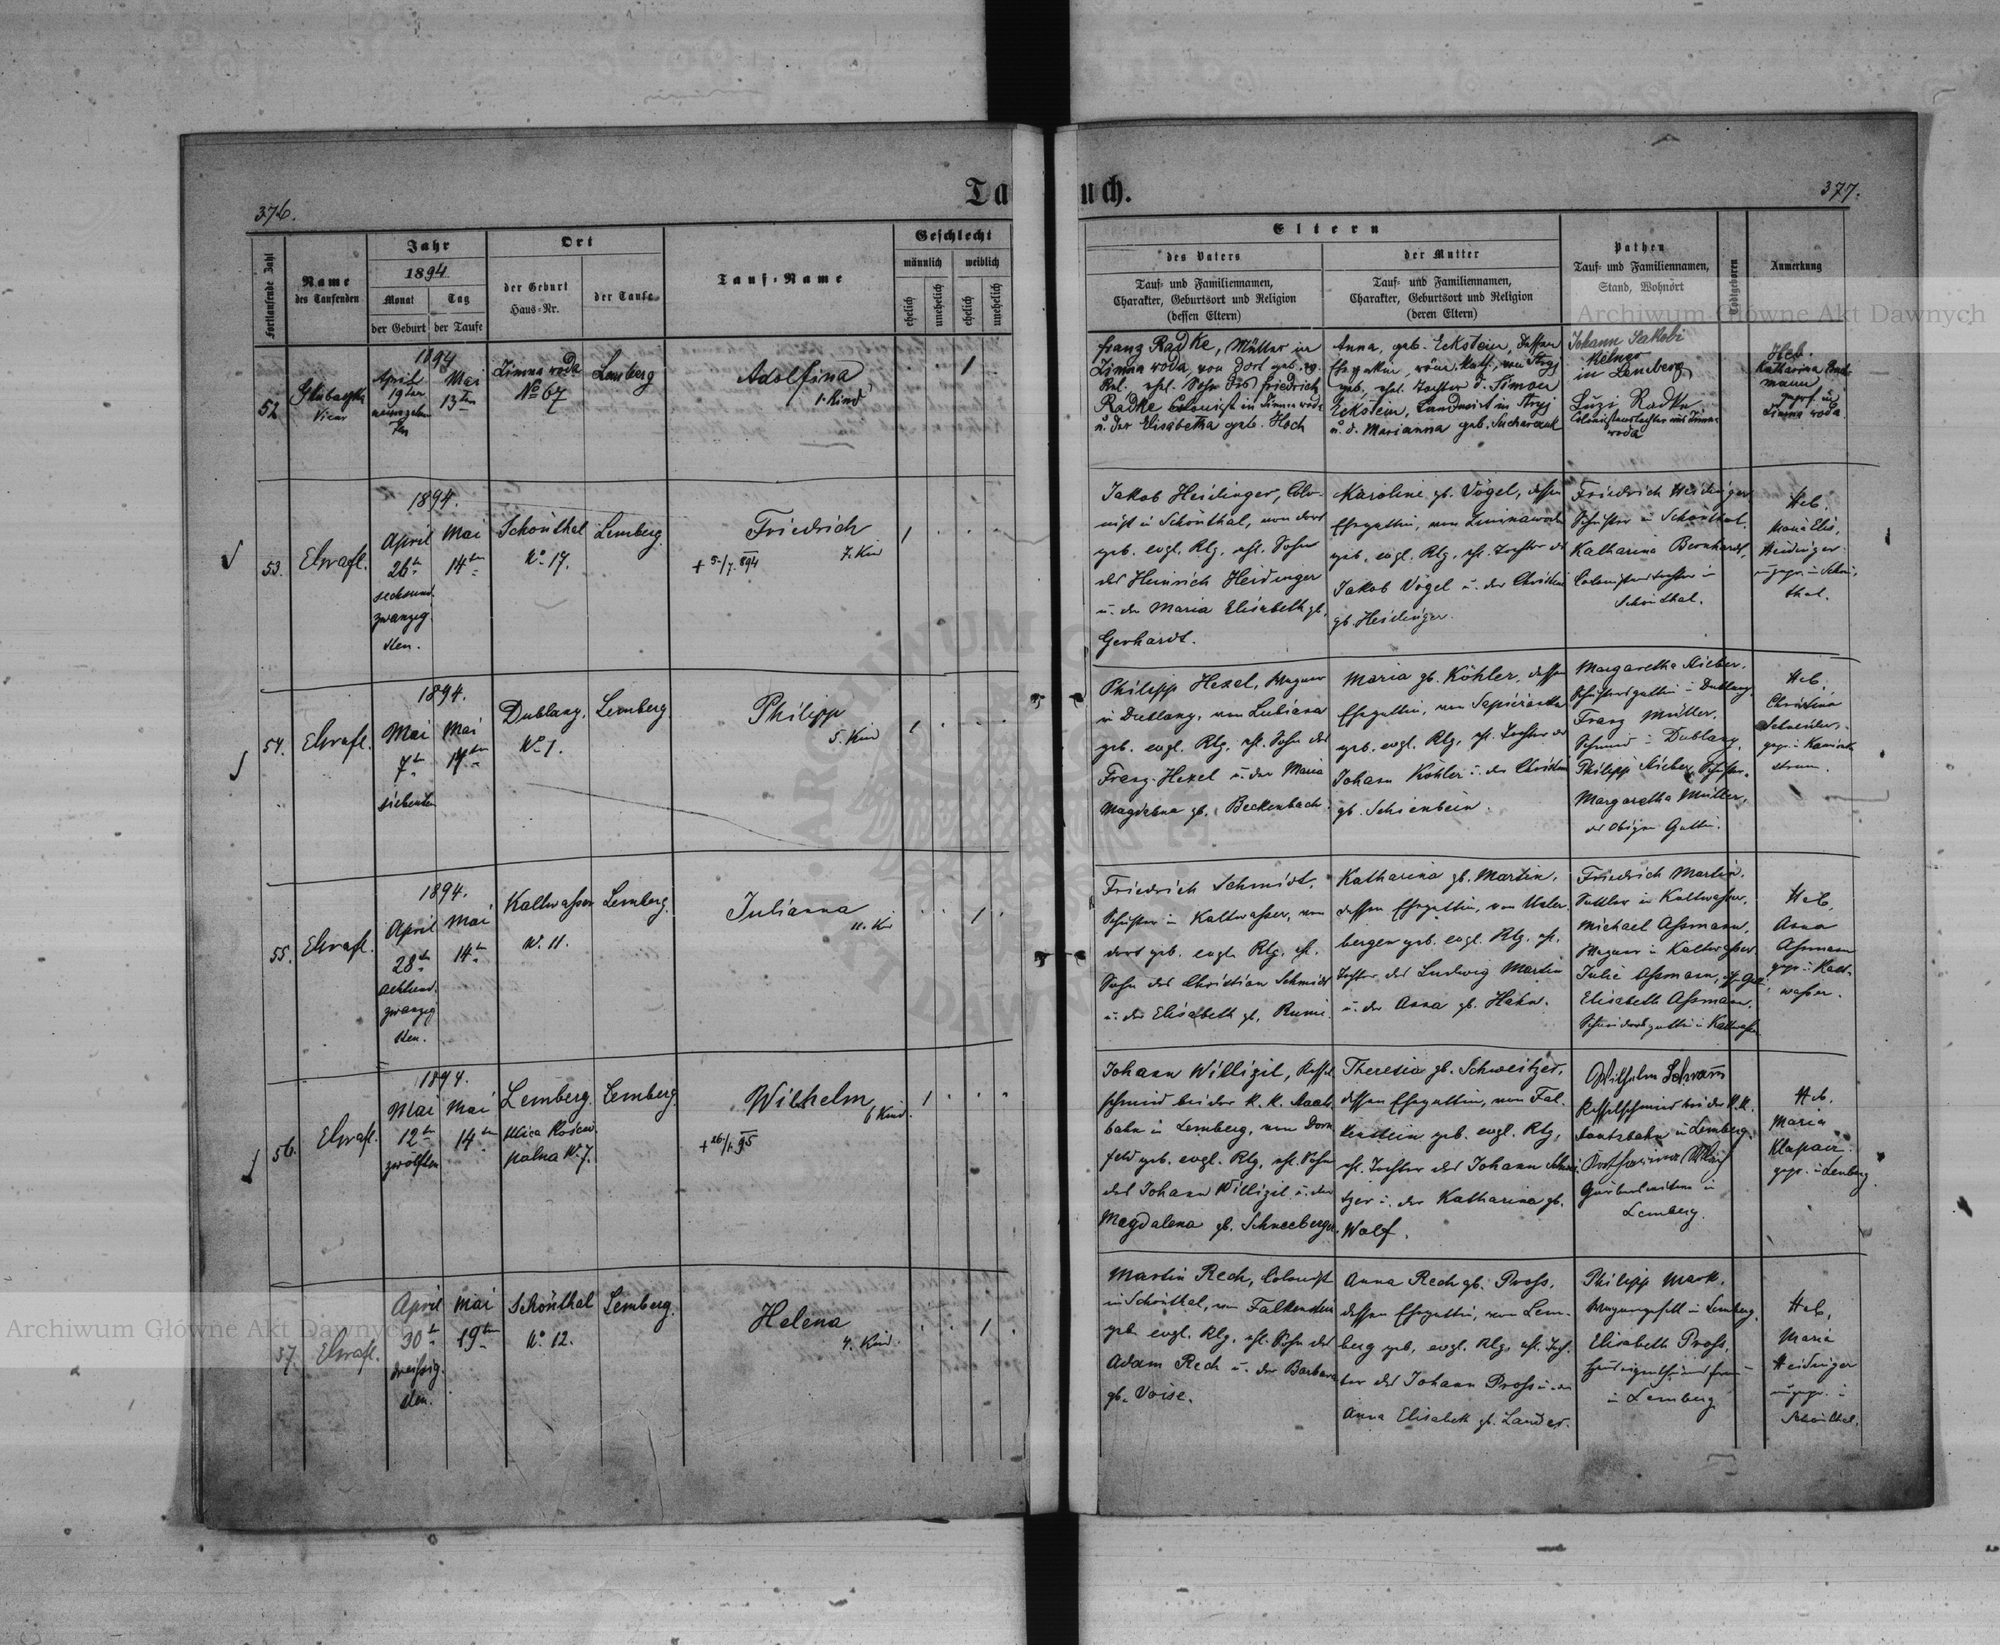 376.
Ta
uch.
377.
Fortlaufende Zahl
Name
des Taufenden
Jahr
1894
Monat
Tag
der Geburt
der Taufe
Ort
der Geburt
Haus=Nr.
der Taufe
Tauf=Name
Geschlecht
männlich
weiblich
ehelich
unehelich
ehelich
unehelich
Eltern
des Vaters
Tauf= und Familiennamen,
Charakter, Geburtsort und Religion
(dessen Eltern)
der Mutter
Tauf= und Familiennamen,
Charakter, Geburtsort und Religion
(deren Eltern)
Pathen
Tauf= und Familiennamen,
Stand, Wohnort
Todtgeboren
Anmerkung
Archiwum Główne Akt Dawnych
52.
Vicar
1894
April
19ten
Mai
13ten
Zimna woda
No 67
Lemberg
Adolfina
1. Kind
1
Franz Radke, Müller in
Zimna woda, von dort geb. ev.
Rel. ehl. Sohn des Friedrich
Radke Colonist in Zimna woda
u. der Elisabetha geb. Hoch
Anna, geb. Eckstein, dessen
Ehegattin, röm. kath., von Stryj
geb. ehl. Tochter d. Simon
Eckstein, Landwirt in Stryj
u. d. Marianna geb. Sucharczuk
Johann Jakobi
in Lemberg
Luzi Radke
Heb.
Katharina
Zimna woda
53.
1894.
April
26te
sechsund
zwanzig
sten.
Mai
14ten
Schönthal
No 17.
Lemberg.
Friedrich
7. Kind
+ 5/7. 894
1
Jakob Heidinger, Colo-
nist in Schönthal, von dort
geb. evgl. Rlg. ehl. Sohn
des Heinrich Heidinger
u. der Maria Elisabeth gb.
Gerhardt.
Karoline gb. Vogel, dessen
Ehegattin, von Zimnawoda
geb. evgl. Rlg. ehl. Tochter des
Jakob Vogel u. der Christine
gb. Heidinger.
Friedrich Heidinger
Schuster in Schönthal.
Katharina Bernhardt,
Colonistentochter in
Schönthal.
Heb.
Maria Elis.
Heidinger
ungepr. in Schön-
thal.
54.
1894.
Mai
7te
siebenten
Mai
14ten
Dublany.
No 1.
Lemberg
Philipp
5. Kind
1
Philipp Hexel, Wagner
in Dublany, von Lubiana
geb. evgl. Rlg. ehl. Sohn des
Franz Hexel u. der Maria
Magdalena gb. Beckenbach.
Maria gb. Köhler, dessen
Ehegattin, von
geb. evgl. Rlg. ehl. Tochter des
Johann Köhler u. der Christine
gb. Schienbein.
Margaretha Stieber,
Schustersgattin in Dublany.
Franz Müller,
Schmied in Dublany.
Philipp Stieber, Schuster.
Margaretha Müller,
des obigen Gattin.
Heb.
Christina
55.
1894.
April
28te
achtund
zwanzig
sten.
Mai
14te
Kaltwasser
No. 11.
Lemberg.
Julianna
11. Kind
1
Friedrich Schmidt,
Schuster in Kaltwasser, von
dort geb. evgl. Rlg. ehl.
Sohn des Christian Schmidt
u. der Elisabeth gb.
Katharina gb. Martin,
dessen Ehegattin, von Unter-
bergen geb. evgl. Rlg. ehl.
Tochter des Ludwig Martin
u. der Anna gb. Hahn.
Friedrich Martin,
Sattler in Kaltwasser.
Michael Assmann,
Wagner in Kaltwasser.
Julie Assmann,
Elisabeth Assmann,
Schneidersgattin in Kaltwasser
Heb.
Anna
Assmann
gepr. in Kalt-
wasser.
56.
1894.
Mai
12te
zwölften
Mai
14ten
Lemberg.
No 7.
Lemberg.
Wilhelm
6 Kind.
1
Johann Willigil, Kessel-
schmied bei der K. K. Staats-
bahn in Lemberg, von Dorn-
feld geb. evgl. Rlg. ehl. Sohn
des Johann Willigil u. der
Magdalena gb. Schneeberger.
Theresia gb. Schweitzer,
dessen Ehegattin, von Fal-
kenstein geb. evgl. Rlg.
ehl. Tochter des Johann Schwei-
tzer u. der Katharina gb.
Wolf.
Wilhelm Schramm
Kesselschmied bei der K. K.
Staatsbahn in Lemberg.
Lemberg.
Heb.
Maria
gepr. in Lemberg
57.
April
30te
dreissig
sten.
Mai
19ten
Schönthal
No. 12.
Lemberg.
Helena
4. Kind.
1
Martin Rech, Colonist
in Schönthal, von Falkenstein
geb. evgl. Rlg. ehl. Sohn des
Adam Rech u. der Barbara
gb. Voise.
Anna Rech gb. Pross,
dessen Ehegattin, von Lem-
berg geb. evgl. Rlg. ehl. Toch-
ter des Johann Pross u. der
Anna Elisabeth gb. Landes.
Philipp Mark,
Wagengesell in Lemberg.
Elisabeth Pross,
in Lemberg
Heb.
Maria
Heidinger
ungepr. in
Schönthal.
Archiwum Główne Akt Dawnych